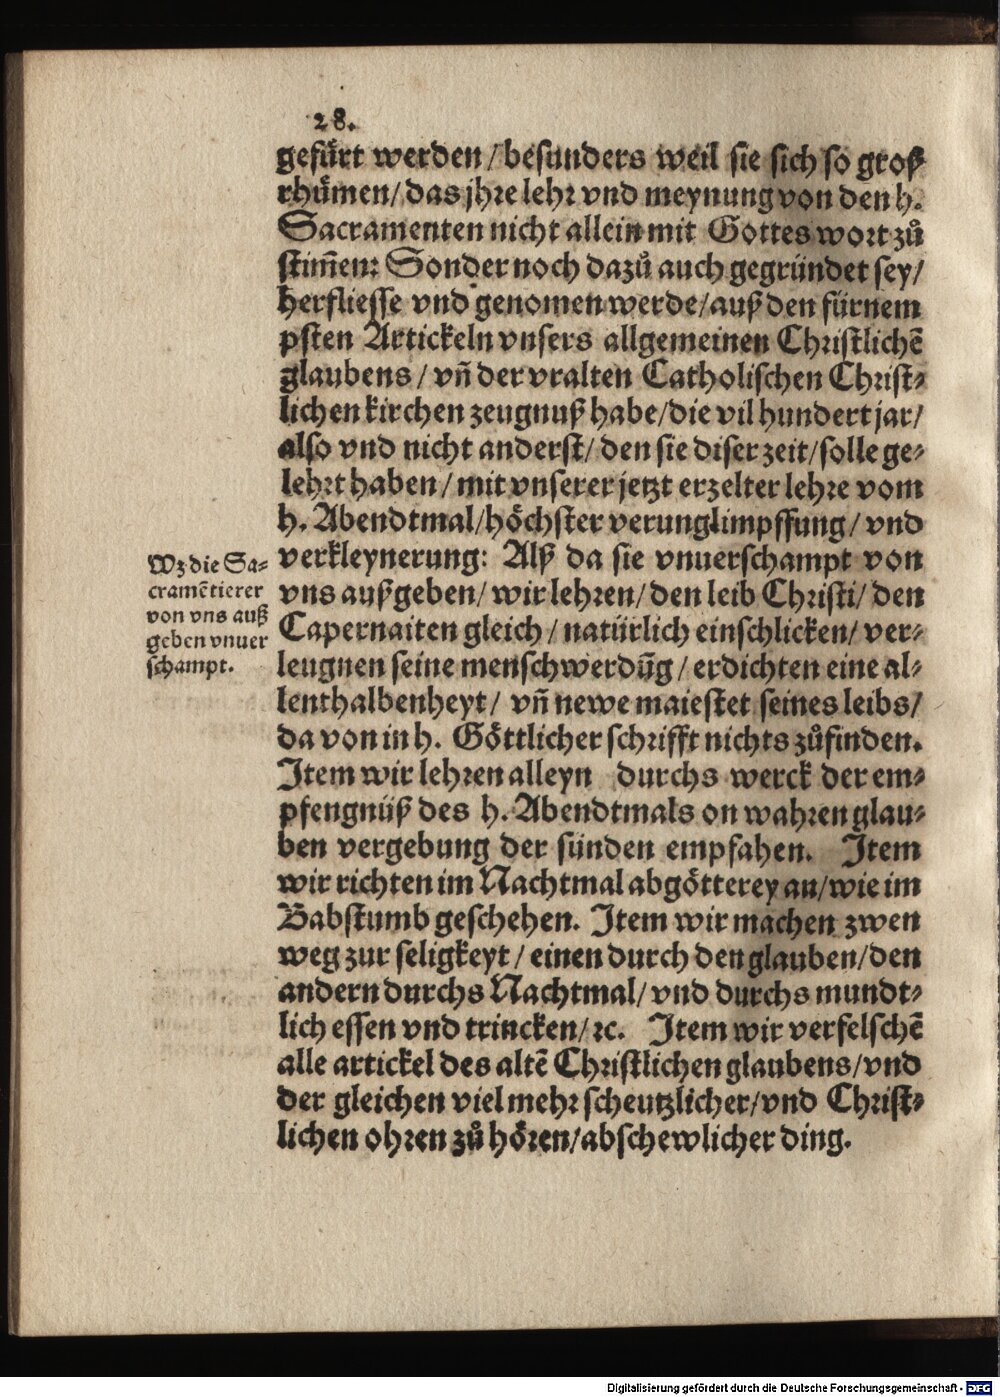 28.
gefürt werden / besunders weil sie sich so groß
rhümen/ das jhre lehr vnd meynung von den h.
Sacramenten nicht allein mit Gottes wort zů
stim̃en: Sonder noch dazů auch gegründet sey/
herfliesse vnd genomen werde/ auß den fürnem
psten Artickeln vnsers allgemeinen Christlichẽ
glaubens / vñ der vralten Catholischen Christ-
lichen kirchen zeugnuß habe/ die vil hundert jar/
also vnd nicht anderst/ den sie diser zeit/ solle ge-
lehrt haben / mit vnserer jetzt erzelter lehre vom
h. Abendtmal/ höchster verunglimpffung/ vnd
verkleynerung: Alß da sie vnuerschampt von
vns außgeben/ wir lehren/ den leib Christi/ den
Capernaiten gleich / natürlich einschlicken/ ver-
leugnen seine menschwerdũg / erdichten eine al-
lenthalbenheyt/ vñ newe maiestet seines leibs/
da von in h. Göttlicher schrifft nichts zůfinden.
Item wir lehren alleyn durchs werck der em-
pfengnüß des h. Abendtmals on wahren glau-
ben vergebung der sünden empfahen. Item
wir richten im Nachtmal abgötterey an/ wie im
Babstumb geschehen. Item wir machen zwen
weg zur seligkeyt / einen durch den glauben/ den
andern durchs Nachtmal/ vnd durchs mundt-
lich essen vnd trincken/ ꝛc. Item wir verfelschẽ
alle artickel des altẽ Christlichen glaubens/ vnd
der gleichen viel mehr scheutzlicher/ vnd Christ-
lichen ohren zů hören/ abschewlicher ding.
Wz die Sa-
cramẽtierer
von vns auß
geben vnuer
schampt.
Digitalisierung gefördert durch die Deutsche Forschungsgemeinschaft - DFG